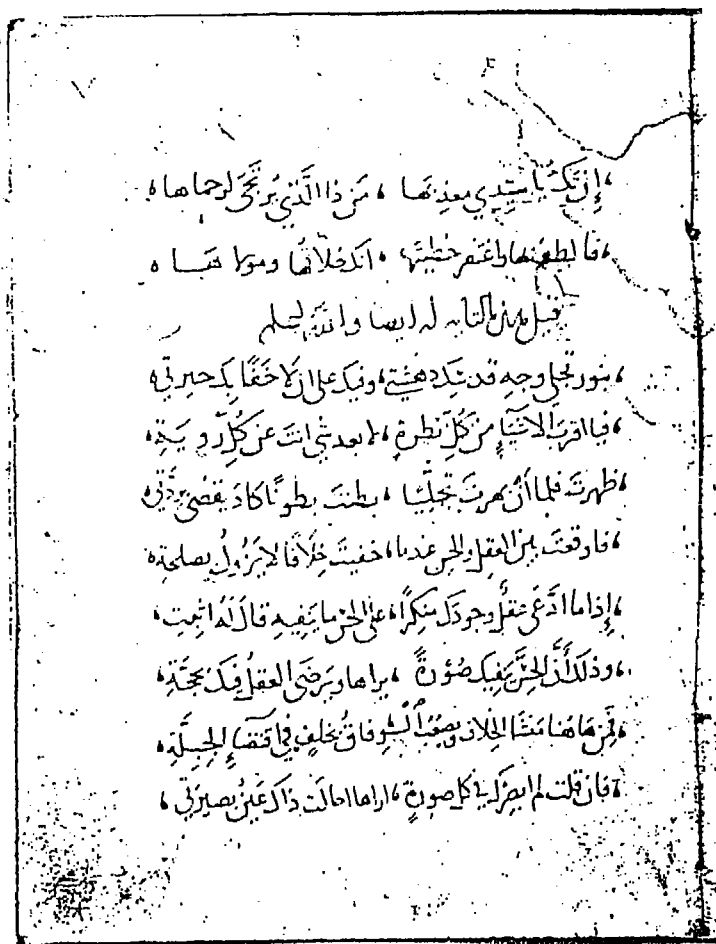 إن تك يا سيدي معذبها ، من ذا الذي يرتجى لرحماها
فالطف بها واغتفر خطيتها ، انك خلاقها ومولاها
له ايضا والله اعلم
بنور تجلى وجه قدسك دهشتي ، وفيك على ان لا خفا بك حيرتي
فيا اقرب الاشياء من كل نظرة ، لا بعد شي انت عن كل رويية ،
ظهرت فلما أن بهرت تجليا ، بطنت بطونا كاد يقضي بردتي
فاوقعت بين العقل والحس عندما ، خفيت خلافا لا يزول بصلحة
إذا ما ادعى عقل وجودك منكرا ، على الحس ما ينفيه قال له اثبت ،
وذلك أن الحس ينفيك صورة ، يراها ويرضى العقل فيك بحجة ،
فمن هاهنا منشا الخلاف ويصعب الوفاق بخلف في اقتضاء الجبلة ،
فان قلت لم ابصرك في كل صورة ، اراها احالت ذاك عين بصيرتي ،